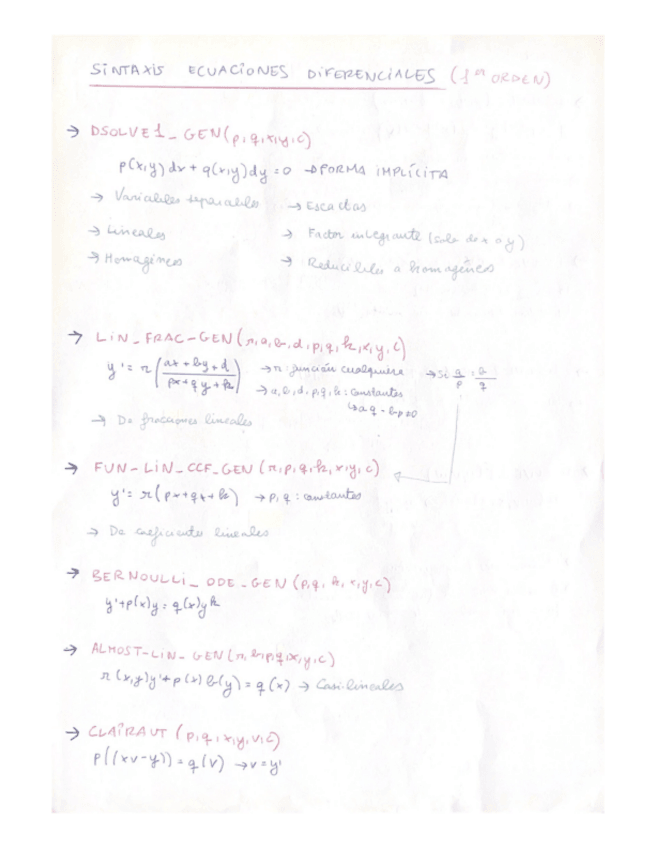 SINTAXIS ECUACIONES DIFERENCIALES (1er ORDEN)
→ DSOLVE1_GEN(p,q,x,y,c)
p(x,y)dx + q(x,y)dy = 0 → FORMA IMPLÍCITA
→ Variables separables → Exactas
→ Lineales → Factor integrante (solo de x o y)
→ Homogéneas → Reducibles a homogéneas
→ LIN_FRAC_GEN(r,a,b,d,p,q,k,x,y,c)
y' = r((ax+by+d)/(px+qy+k)) → r: función cualquiera → Si a/p = b/q
→ a,b,d,p,q,k: constantes
↳ aq - bp ≠ 0
→ De fracciones lineales
→ FUN_LIN_CCF_GEN(r,p,q,k,x,y,c)
y' = r(px+qy+k) → p,q: constantes
→ De coeficientes lineales
→ BERNOULLI_ODE_GEN(p,q,k,x,y,c)
y'+p(x)y = q(x)y^k
→ ALMOST_LIN_GEN(r,b,p,q,x,y,c)
r(x,y)y'+p(x)b(y) = q(x) → Casi lineales
→ CLAIRAUT(p,q,x,y,v,c)
p((xv-y)) = q(v) → v=y'